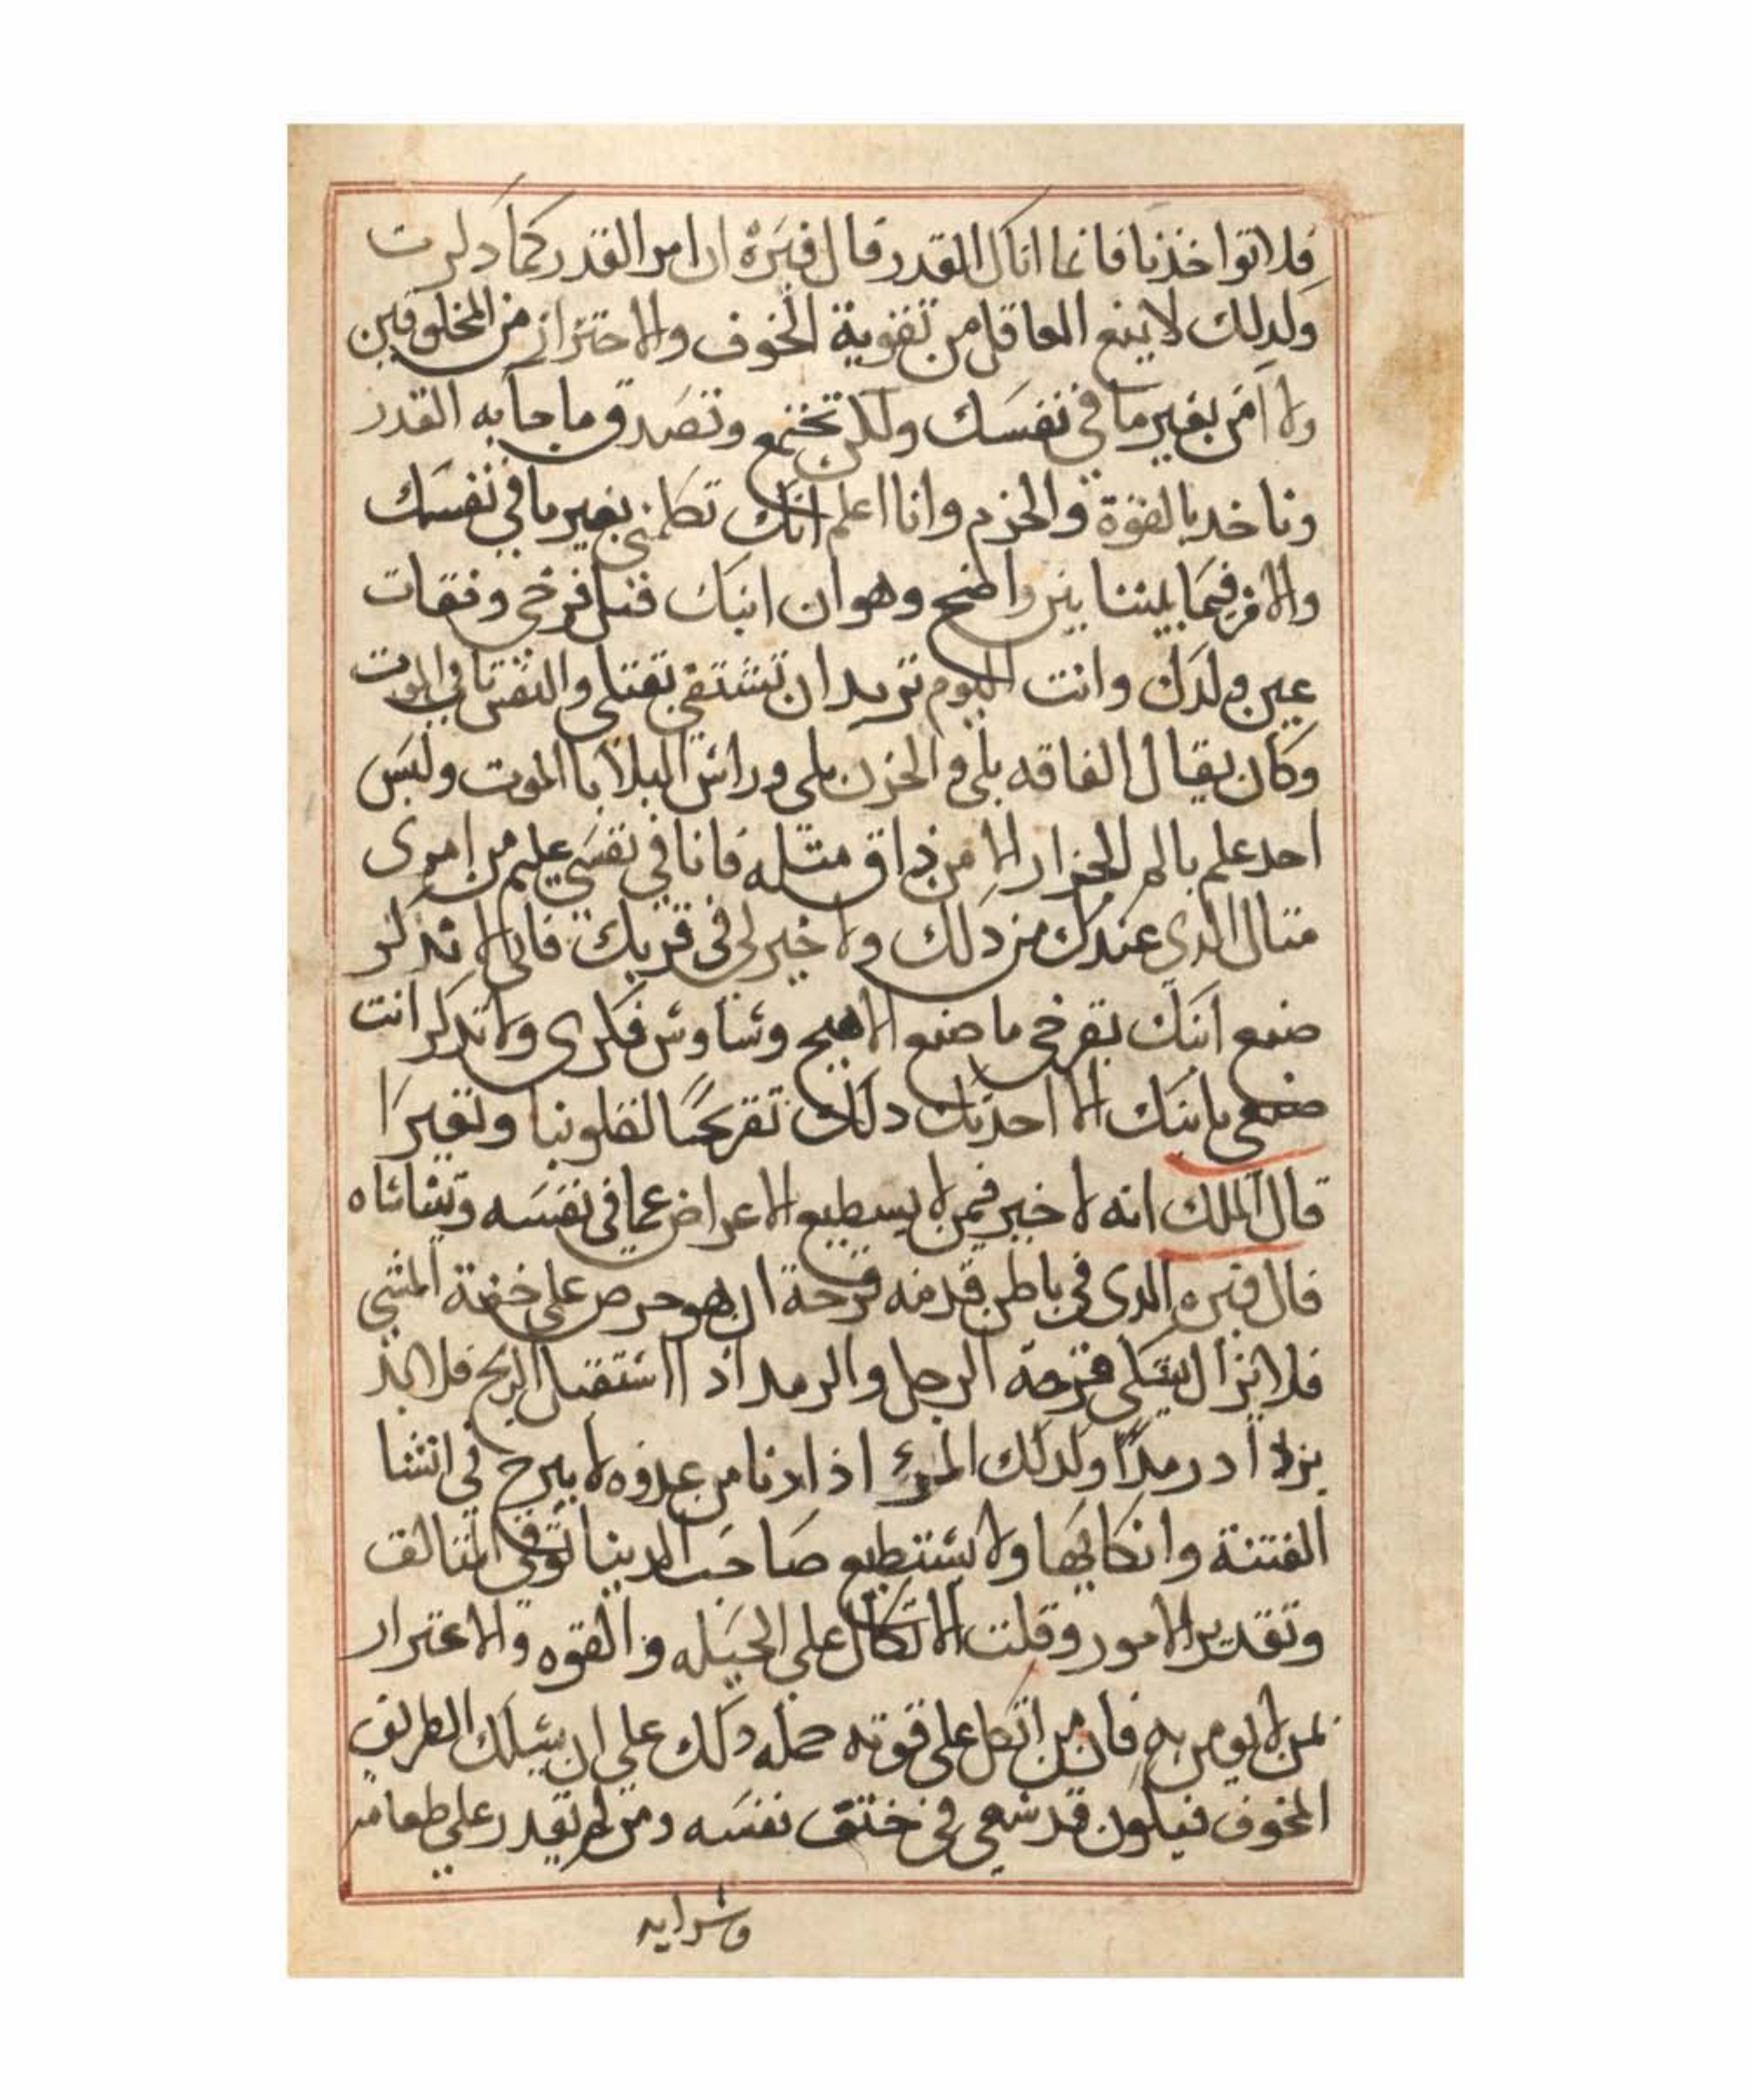 فلا تواخذنا فانما اتاك القدر قال فبزه ان امر القدر كما دكرت
ولدلك لا يمنع العاقل من تقوية الخوف والاحتراز من المخلوقين
ولا امن بغير ما في نفسك ولكن تجتمع وتصدق ما جا به القدر
وناخد بالقوة والحزم وانا اعلم انك تكلمني بغير ما في نفسك
والامر فيما بيننا بين واضح وهو ان ابنك قتل فرخي وفقات
عين ولدك وانت اليوم تريد ان تشتفي بقتلي والنفس تابي الموت
وكان يقال الفاقه بلى والحزن بلى وراس البلايا الموت وليس
احد علم بالم الجزار الا من ذاق متله فانا في نفسي عليم من امرى
متال الدي عندك من دلك ولا خير لي في قربك فانى لا تدكر
صنع ابنك بفرخي ما صنع الا هيج وساوس فكرى ولا تدكر انت
صنعي بابنك الا احدتك دلك تقريحا لقلوبنا وتغيرا
قال الملك انه لا خير فيمن لا يسطيع الاعراض عما في نفسه ويتناساه
قال فبزه والدى في باطن قدمه قرحة ان هو حرص على خفة المشي
فلا يزال يشكي قرحة الرجل والرمد اذا استقبل الريح فلا بد
يزداد رمدا ولدلك المرئ اذا دنا من عدوه لا يبرح في انشا
الفتنة وانكايها ولا يستطيع صاحب الدينا توقي المتالف
وتقدير الامور وقلت الاتكال على الحيله والقوه والاعترار
بمن لا يومن به فان من اتكل على قوته حمله دلك على ان يسلك الطريق
المخوف فيكون قد سعي في ختق نفسه ومن لم يقدر على طعامه
وشرابه